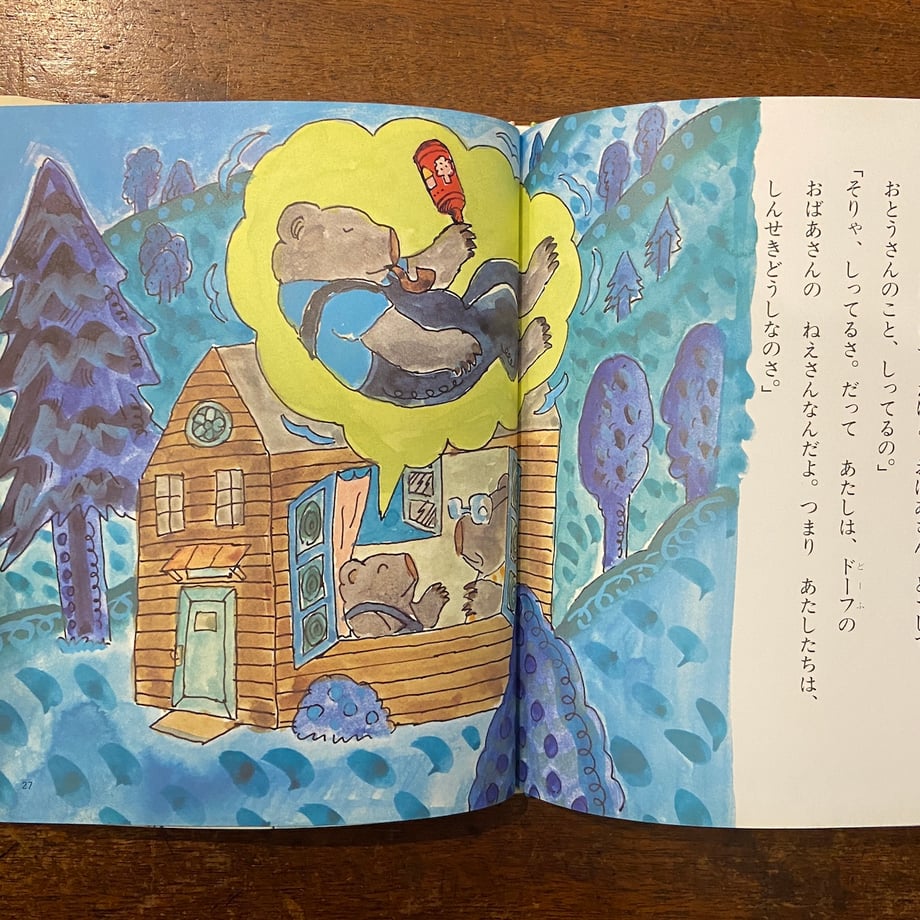 おとうさんのこと、しってるの。」
「そりゃ、しってるさ。だって　あたしは、ドーフの
とーふ
おばあさんの　ねえさんなんだよ。つまり　あたしたちは、
しんせきどうしなのさ。」
27